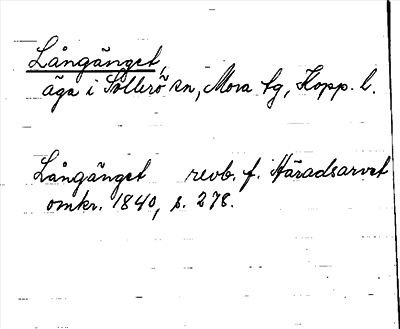 Långänget,
äga i Sollerö sn, Mora tg, Kopp. l.
Långänget revb. f. Häradsarvet
omkr. 1840, s. 278.